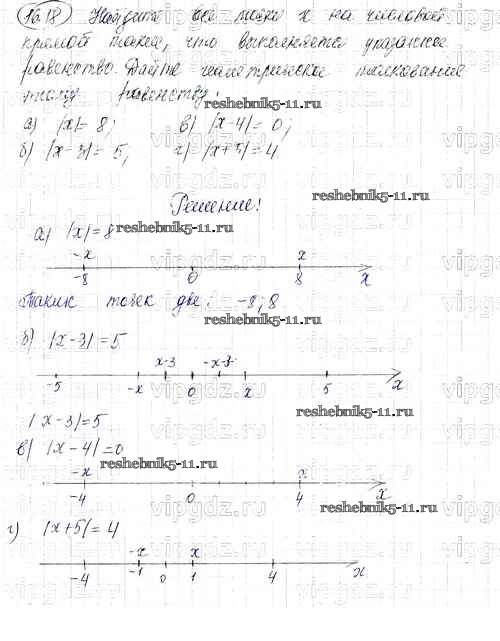 16.18 Найдите все точки x на числовой
прямой такие, что выполняется указанное
равенство. Дайте геометрическое толкование
этому равенству:
reshebnik5-11.ru
а) |x| = 8; в) |x-4| = 0;
б) |x-3| = 5; г) |x+5| = 4
reshebnik5-11.ru
Решение!
а) |x| = 8
reshebnik5-11.ru
-x x
-8 0 8 x
Таких точек две: -8; 8
reshebnik5-11.ru
б) |x-3| = 5
x-3 -x-3
-5 -x 0 x 5 x
reshebnik5-11.ru
|x-3| = 5
в) |x-4| = 0
reshebnik5-11.ru
-x x
-4 0 4 x
г) |x+5| = 4
-x x
-4 -1 0 1 4 x
vipgdz.ru